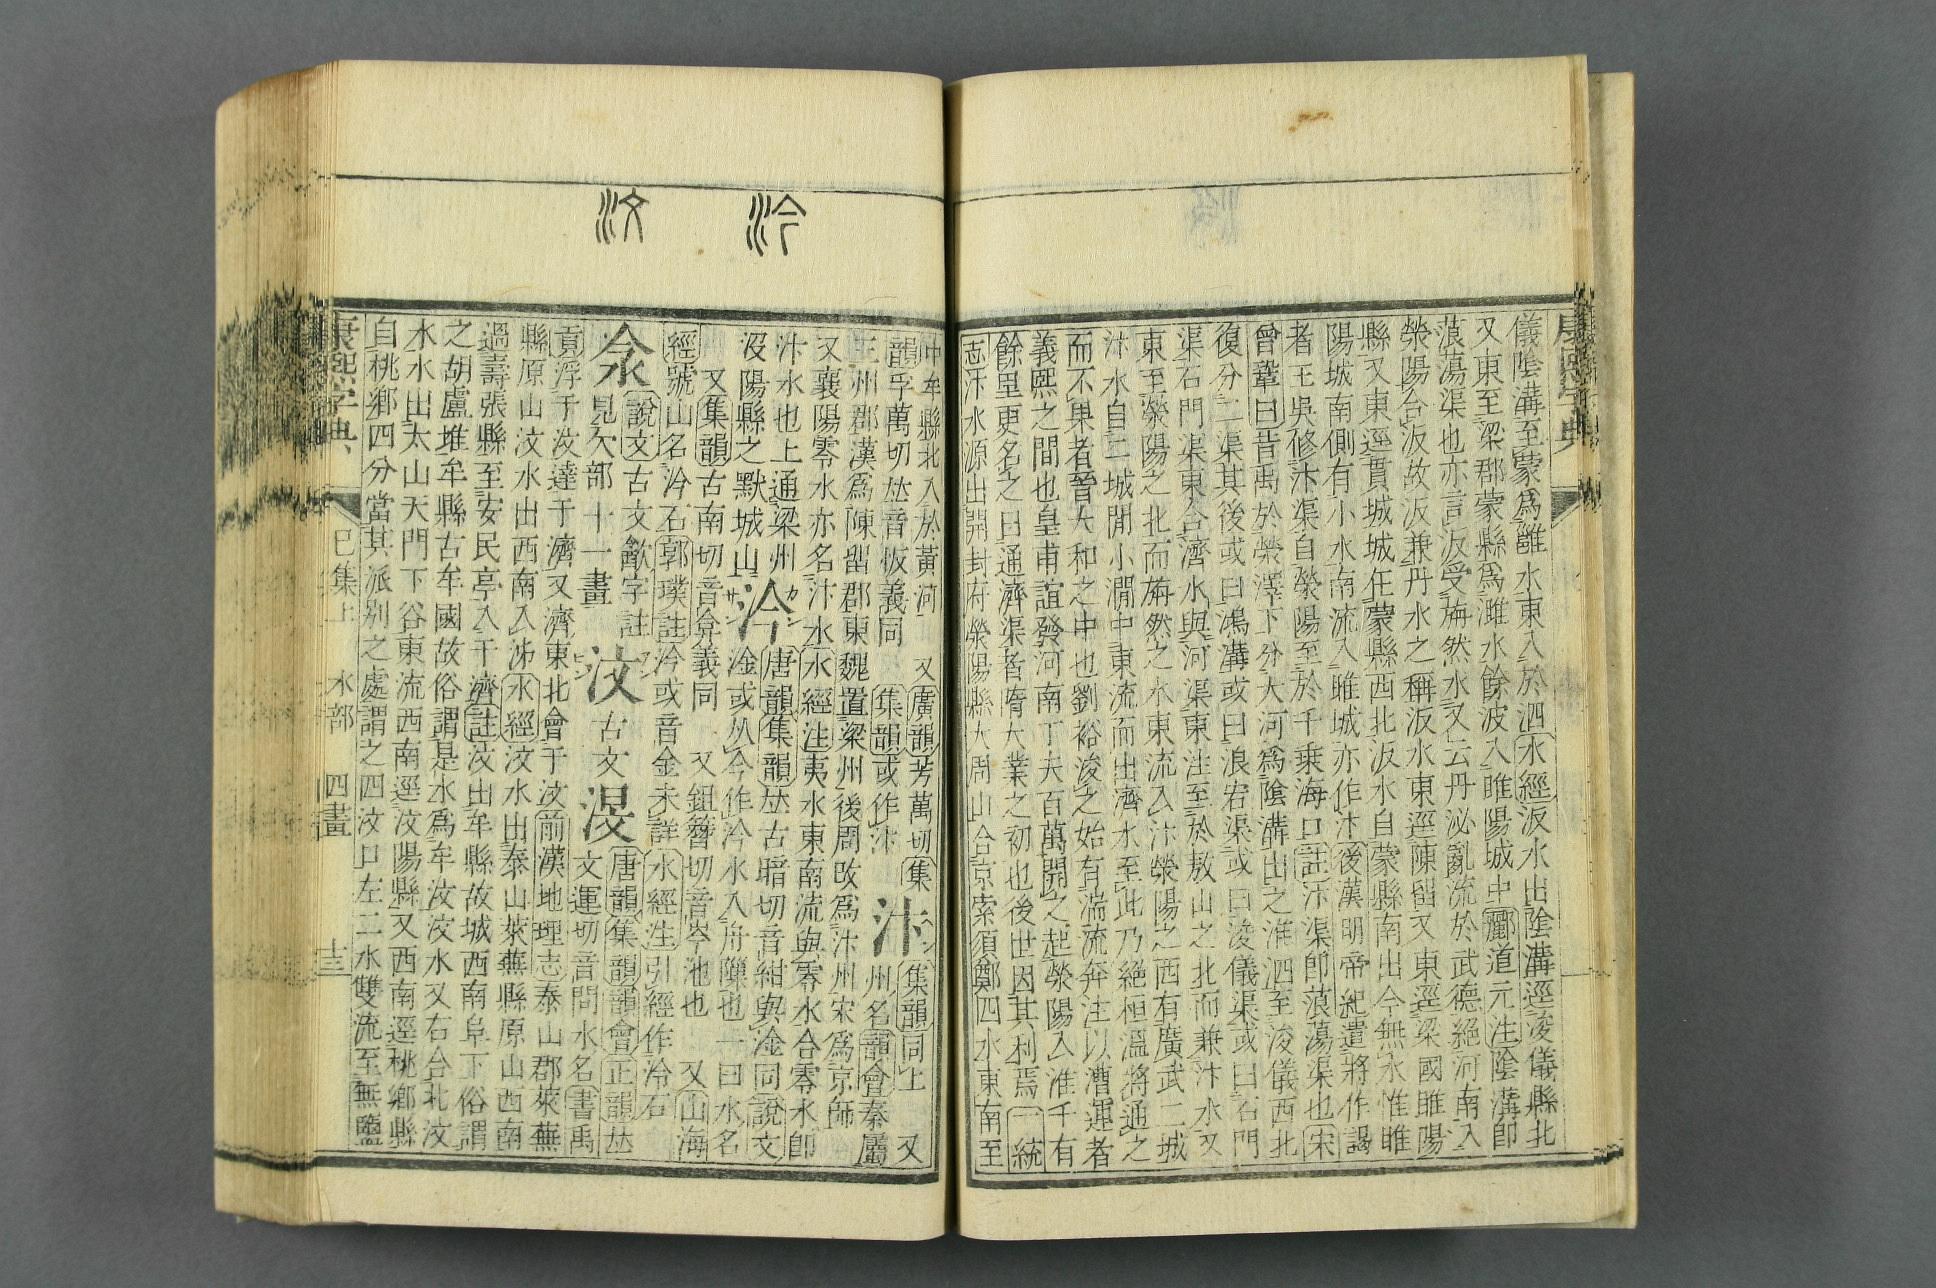 儀陰溝至蒙爲雝水東入於泗水經汳水出陰溝逕浚儀縣北
又東至梁郡蒙縣爲濉水餘波入睢陽城中酈道元注陰溝卽
蒗蕩渠也亦言汳受旃然水又云丹沁亂流於武德絕河南入
滎陽合汳故汳兼丹水之稱汳水東逕陳留又東逕梁國睢陽
縣又東逕貫城城在蒙縣西北汳水自蒙縣南出今無水惟睢
陽城南側有小水南流入睢城亦作汴後漢明帝紀遣將作謁
者王吳修汴渠自滎陽至於千乗海口註汴渠卽蒗蕩渠也宋
曾鞏曰昔禹於滎澤下分大河爲陰溝出之淮泗至浚儀西北
復分二渠其後或曰鴻溝或曰浪宕渠或曰浚儀渠或曰石門
渠石門渠東合濟水與河渠東注至於敖山之北而兼汴水又
東至滎陽之北而旃然之水東流入汴滎陽之西有廣武二城
汴水自二城閒小澗中東流而出濟水至此乃絕桓溫將通之
而不果者晉大和之中也劉裕浚之始有湍流奔注以漕運者
義熙之間也皇甫誼發河南丁夫百萬開之起滎陽入淮千有
餘里更名之曰通濟渠者隋大業之初也後世因其利焉一統
志汴水源出開封府滎陽縣大周山合京索須鄭四水東南至
康熙字典
汵
汶
中牟縣北入於黃河 又廣韻芳萬切集
韻孚萬切𠀤音販義同 集韻或作汴
汴集韻同上 又
州名韻會秦屬
三州郡漢爲陳留郡東魏置梁州後周改爲汴州宋爲京師
又襄陽零水亦名汴水水經注夷水東南流與零水合零水卽
汴水也上通梁州
沒陽縣之默城山
汵唐韻集韻𠀤古暗切音紺與淦同說文
淦或从今作汵水入舟隟也一曰水名
又集韻古南切音弇義同 又鉏簪切音岑池也 又山海
經號山名汵石郭璞註汵或音金未詳水經注引經作泠石
汆說文古文㱃字註
見欠部十一畫
汶古文渂唐韻集韻韻會正韻𠀤
文運切音問水名書禹
貢浮于汶達于濟又濟東北會于汶前漢地理志泰山郡萊蕪
縣原山汶水出西南入泲水經汶水出泰山萊蕪縣原山西南
過壽張縣至安民亭入于濟註汶出牟縣故城西南阜下俗謂
之胡盧堆牟縣古牟國故俗謂是水爲牟汶汶水又右合北汶
水水出太山天門下谷東流西南逕汶陽縣又西南逕桃鄉縣
自桃鄉四分當其派別之處謂之四汶口左二水雙流至無鹽
康熙字典 巳集上 水部 四畫 十三